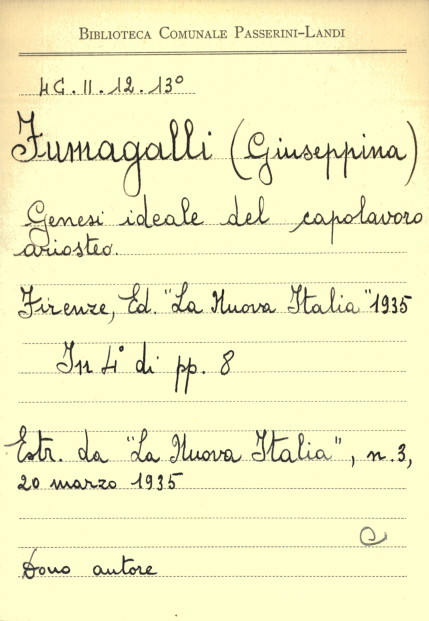 BIBLIOTECA COMUNALE PASSERINI-LANDI
4C.II.12.13°
Fumagalli (Giuseppina)
Genesi ideale del capolavoro
ariosteo.
Firenze, Ed. "La Nuova Italia" 1935
In 4° di pp. 8
Estr. da "La Nuova Italia", n.3,
20 marzo 1935
C
Dono autore